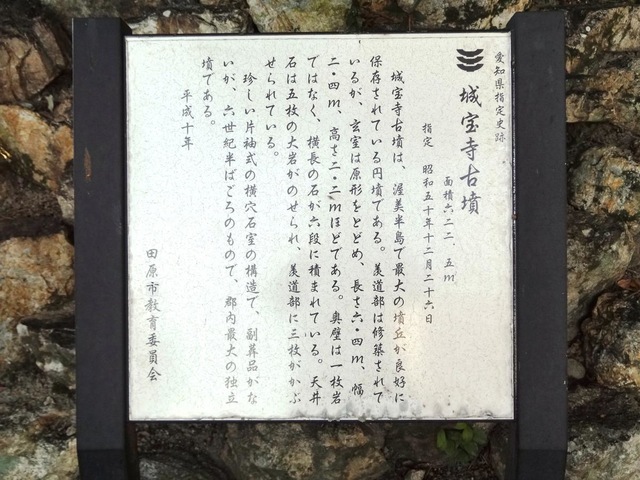 愛知県指定史跡
城宝寺古墳
面積六二二、五m
指定 昭和五十年十二月二十六日
城宝寺古墳は、渥美半島で最大の墳丘が良好に
保存されている円墳である。羨道部は修築されて
いるが、玄室は原形をとどめ、長さ六・四m、幅
二・四m、高さ二・二mほどである。奥壁は一枚岩
ではなく、横長の石が六段に積まれている。天井
石は五枚の大岩がのせられ、羨道部に三枚がかぶ
せられている。
珍しい片袖式の横穴石室の構造で、副葬品がな
いが、六世紀半ばごろのもので、郡内最大の独立
墳である。
平成十年
田原市教育委員会